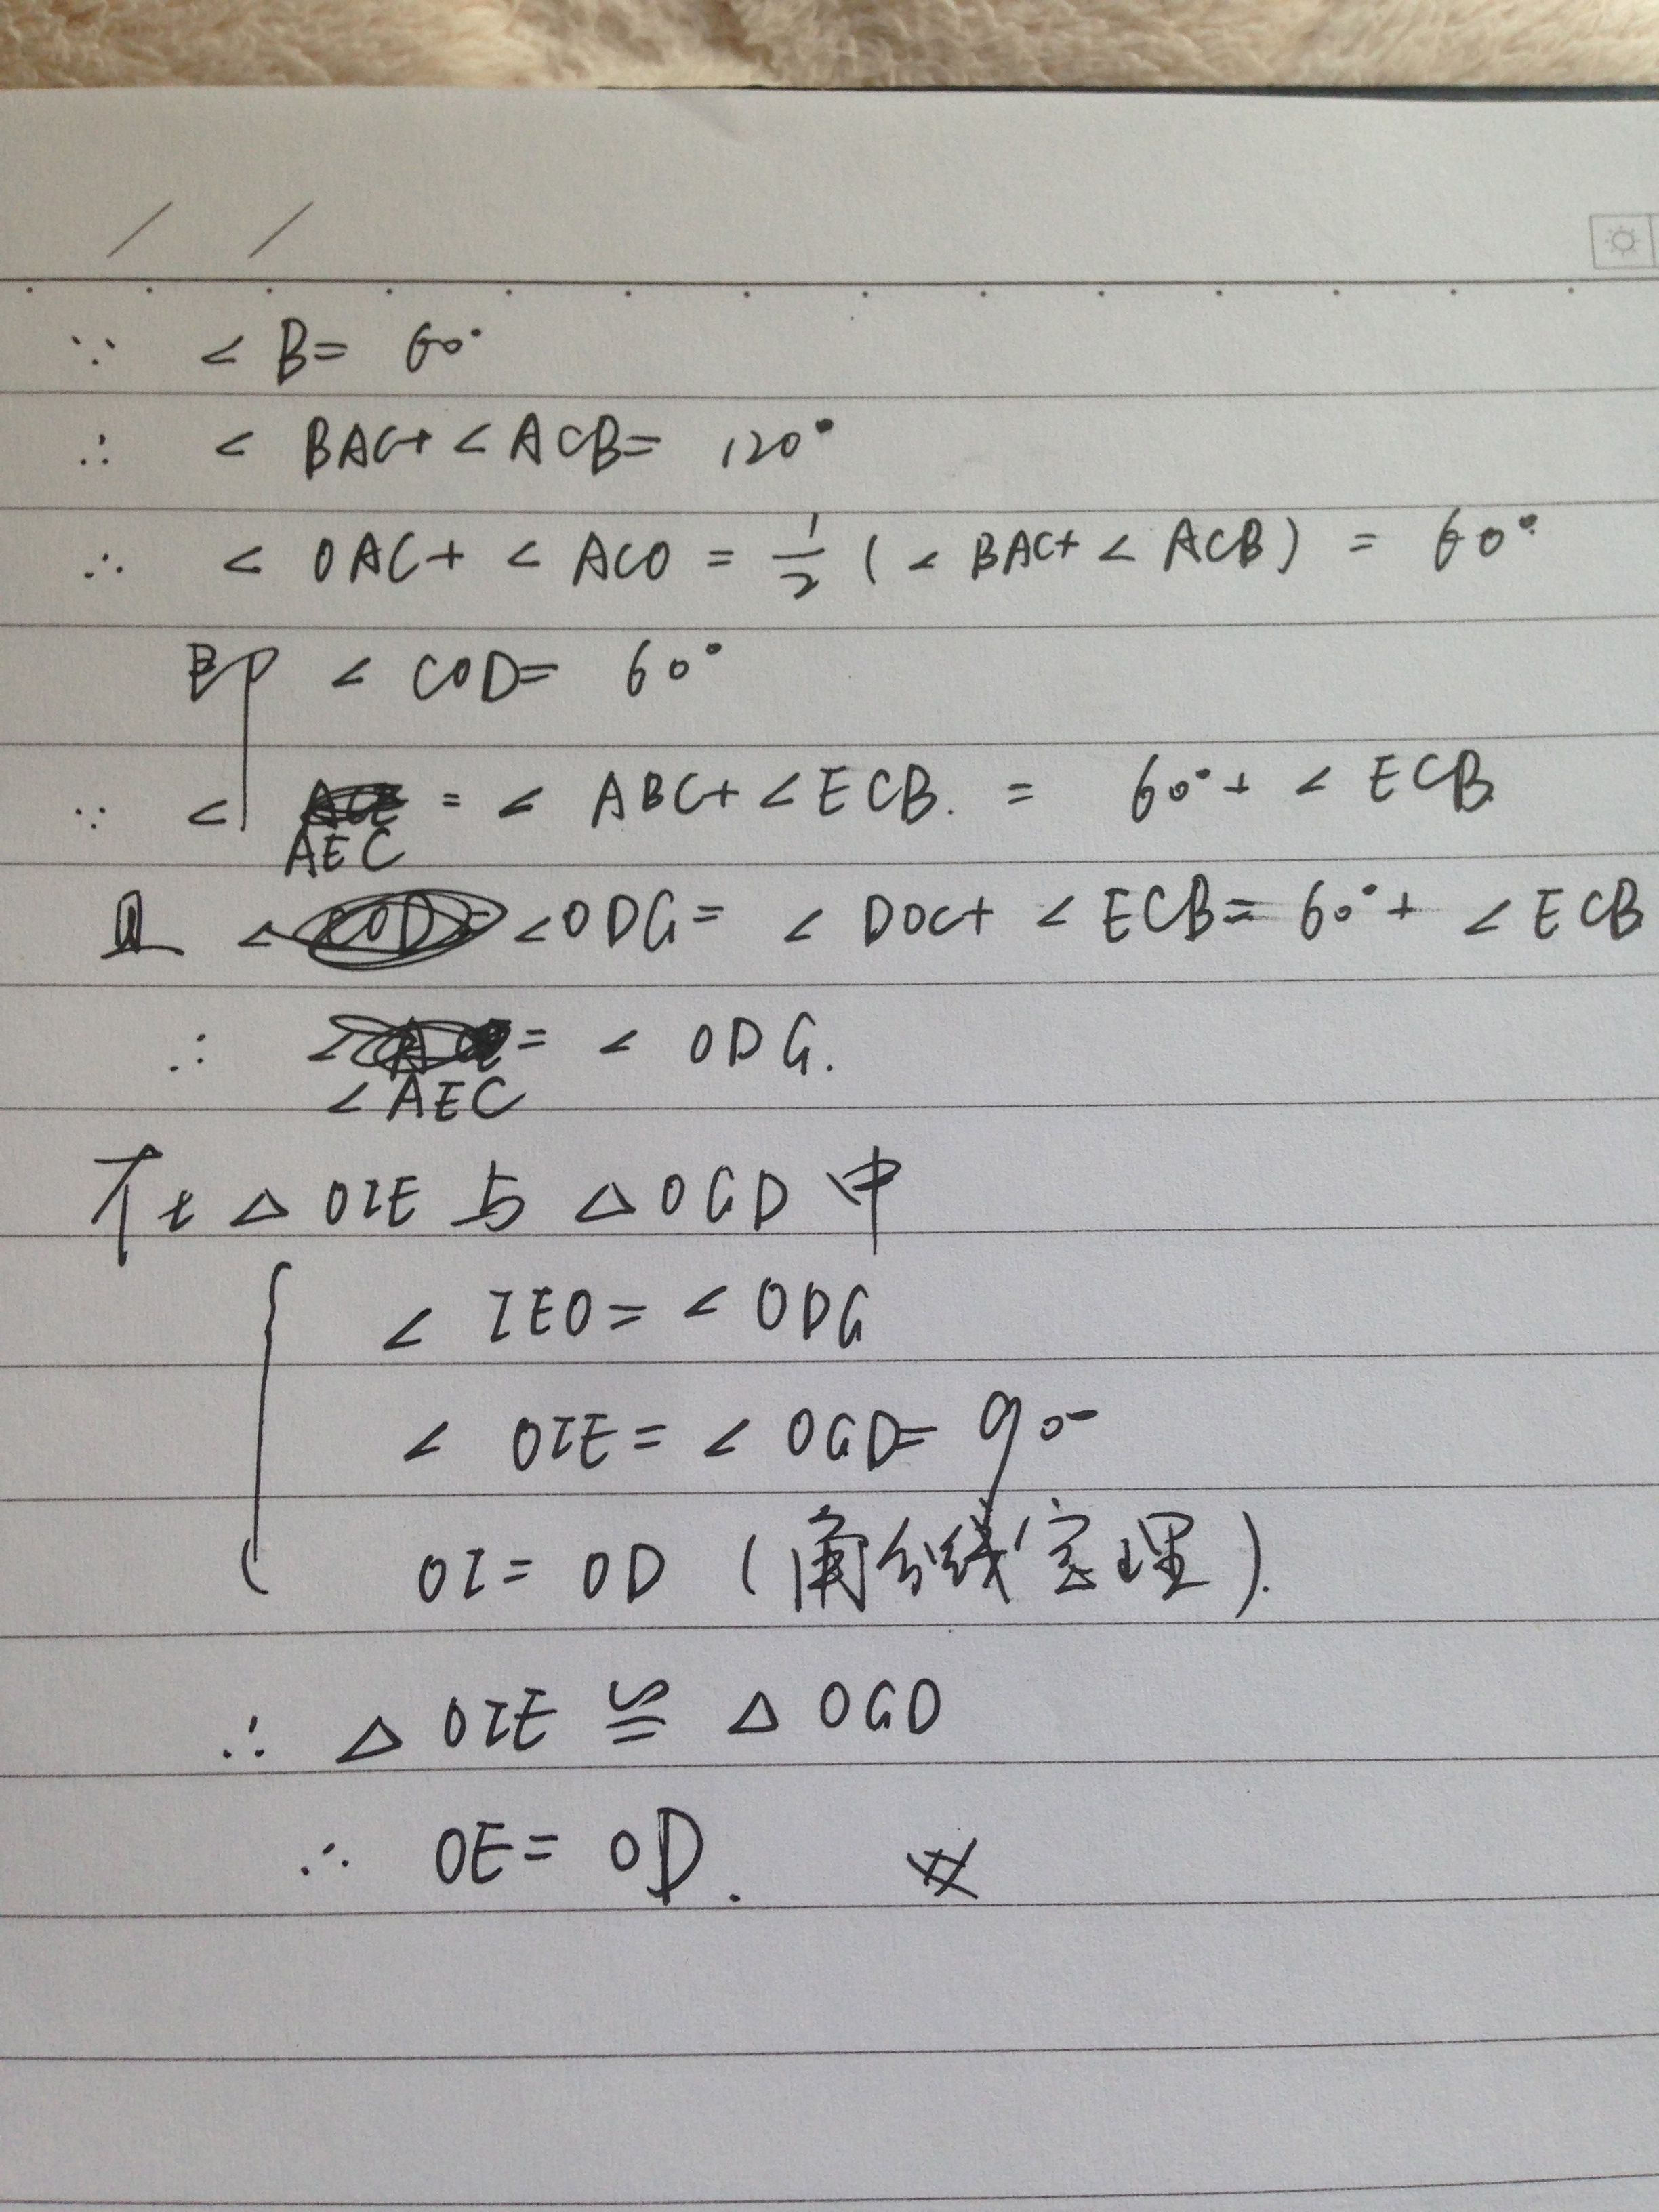 ∵ ∠B= 60°
∴ ∠BAC+∠ACB= 120°
∴ ∠OAC+∠ACO = 1/2 (∠BAC+∠ACB) = 60°
即 ∠COD= 60°
∵ ∠AEC = ∠ABC+∠ECB. = 60°+∠ECB
且 ∠ODG= ∠DOC+∠ECB= 60°+∠ECB
∴ ∠AEC = ∠ODG.
在△OIE与△OGD中
∠IEO= ∠ODG
∠OIE= ∠OGD= 90°
OI= OD (角分线定理).
∴ △OIE ≌ △OGD
∴ OE= OD.